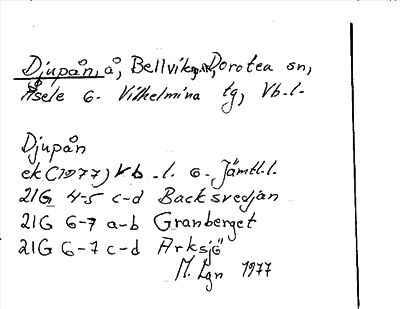 Djupån, å, Bellvik, Dorotea sn,
Åsele o. Vilhelmina tg, Vb.l.
Djupån
ek (1977) Vb.l. o. Jämtl.l.
21G 4-5 c-d Backsvedjan
21G 6-7 a-b Granberget
21G 6-7 c-d Arksjö
M. Lgn 1977